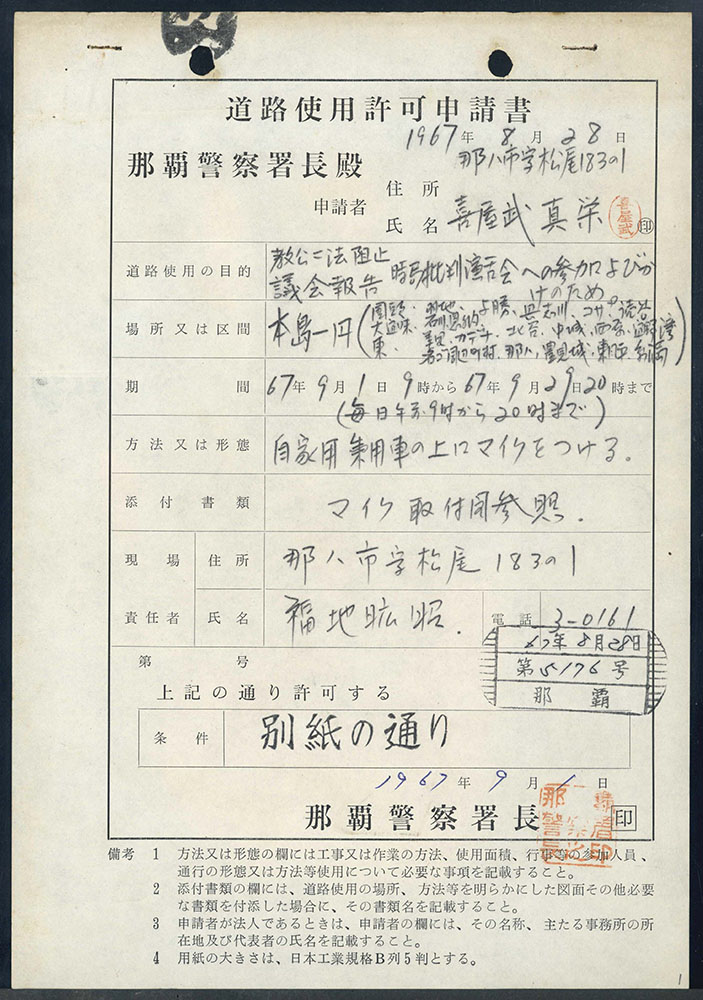 道路使用許可申請書
1967年8月28日
那覇警察署長殿
那八市字松尾183の1
住所
申請者
氏名 喜屋武真栄 喜屋武 印
道路使用の目的 教公二法阻止
議会報告 時局批判演舌会への参加よびか
けのため
場所又は区間 本島一円(国頭・
大宜味・
東・ 与勝・具志川・コザ・読谷
カデナ・北谷・中城・西原
那八・豊見城・東風
期間 67年9月1日9時から67年9月29日20時まで
(毎日午前9時から20時まで)
方法又は形態 自家用乗用車の上にマイクをつける。
添付書類 マイク取付図参照.
現場 住所 那八市字松尾183の1
責任者 氏名 福地昿昭. 電話 3-0161
67年8月28日
第5176号
那覇
第 号
上記の通り許可する
条件 別紙の通り
1967年9月1日
那覇警察署長 印
備考 1 方法又は形態の欄には工事又は作業の方法、使用面積、行事等の参加人員、
通行の形態又は方法等使用について必要な事項を記載すること。
2 添付書類の欄には、道路使用の場所、方法等を明らかにした図面その他必要
な書類を付添した場合に、その書類名を記載すること。
3 申請者が法人であるときは、申請者の欄には、その名称、主たる事務所の所
在地及び代表者の氏名を記載すること。
4 用紙の大きさは、日本工業規格B列5判とする。
1